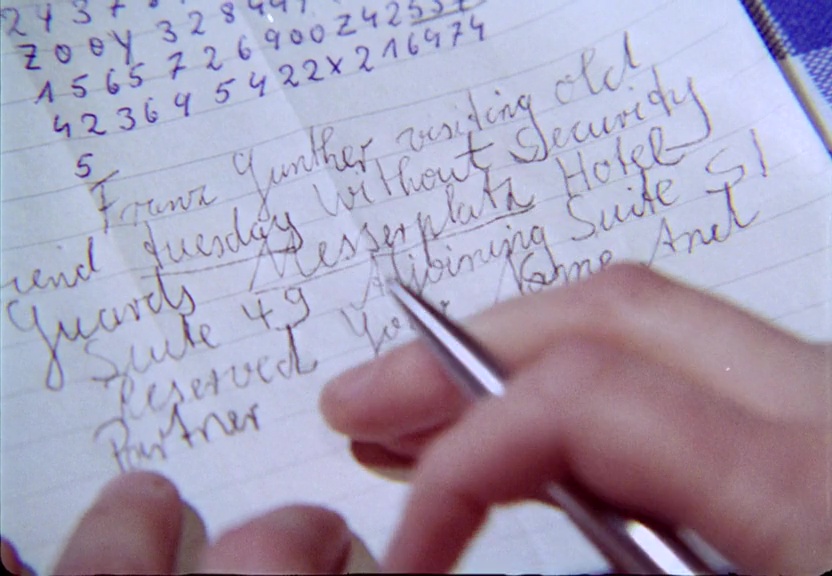 2437
Z00Y 328
1565 72 6900Z4255
42369 5422x216974
5
Franz Gunther visiting old
riend tuesday Without Security
Guards Messerplatz Hotel
Suite 49 Adjoining Suite 51
Reserved Your Name And
Partner